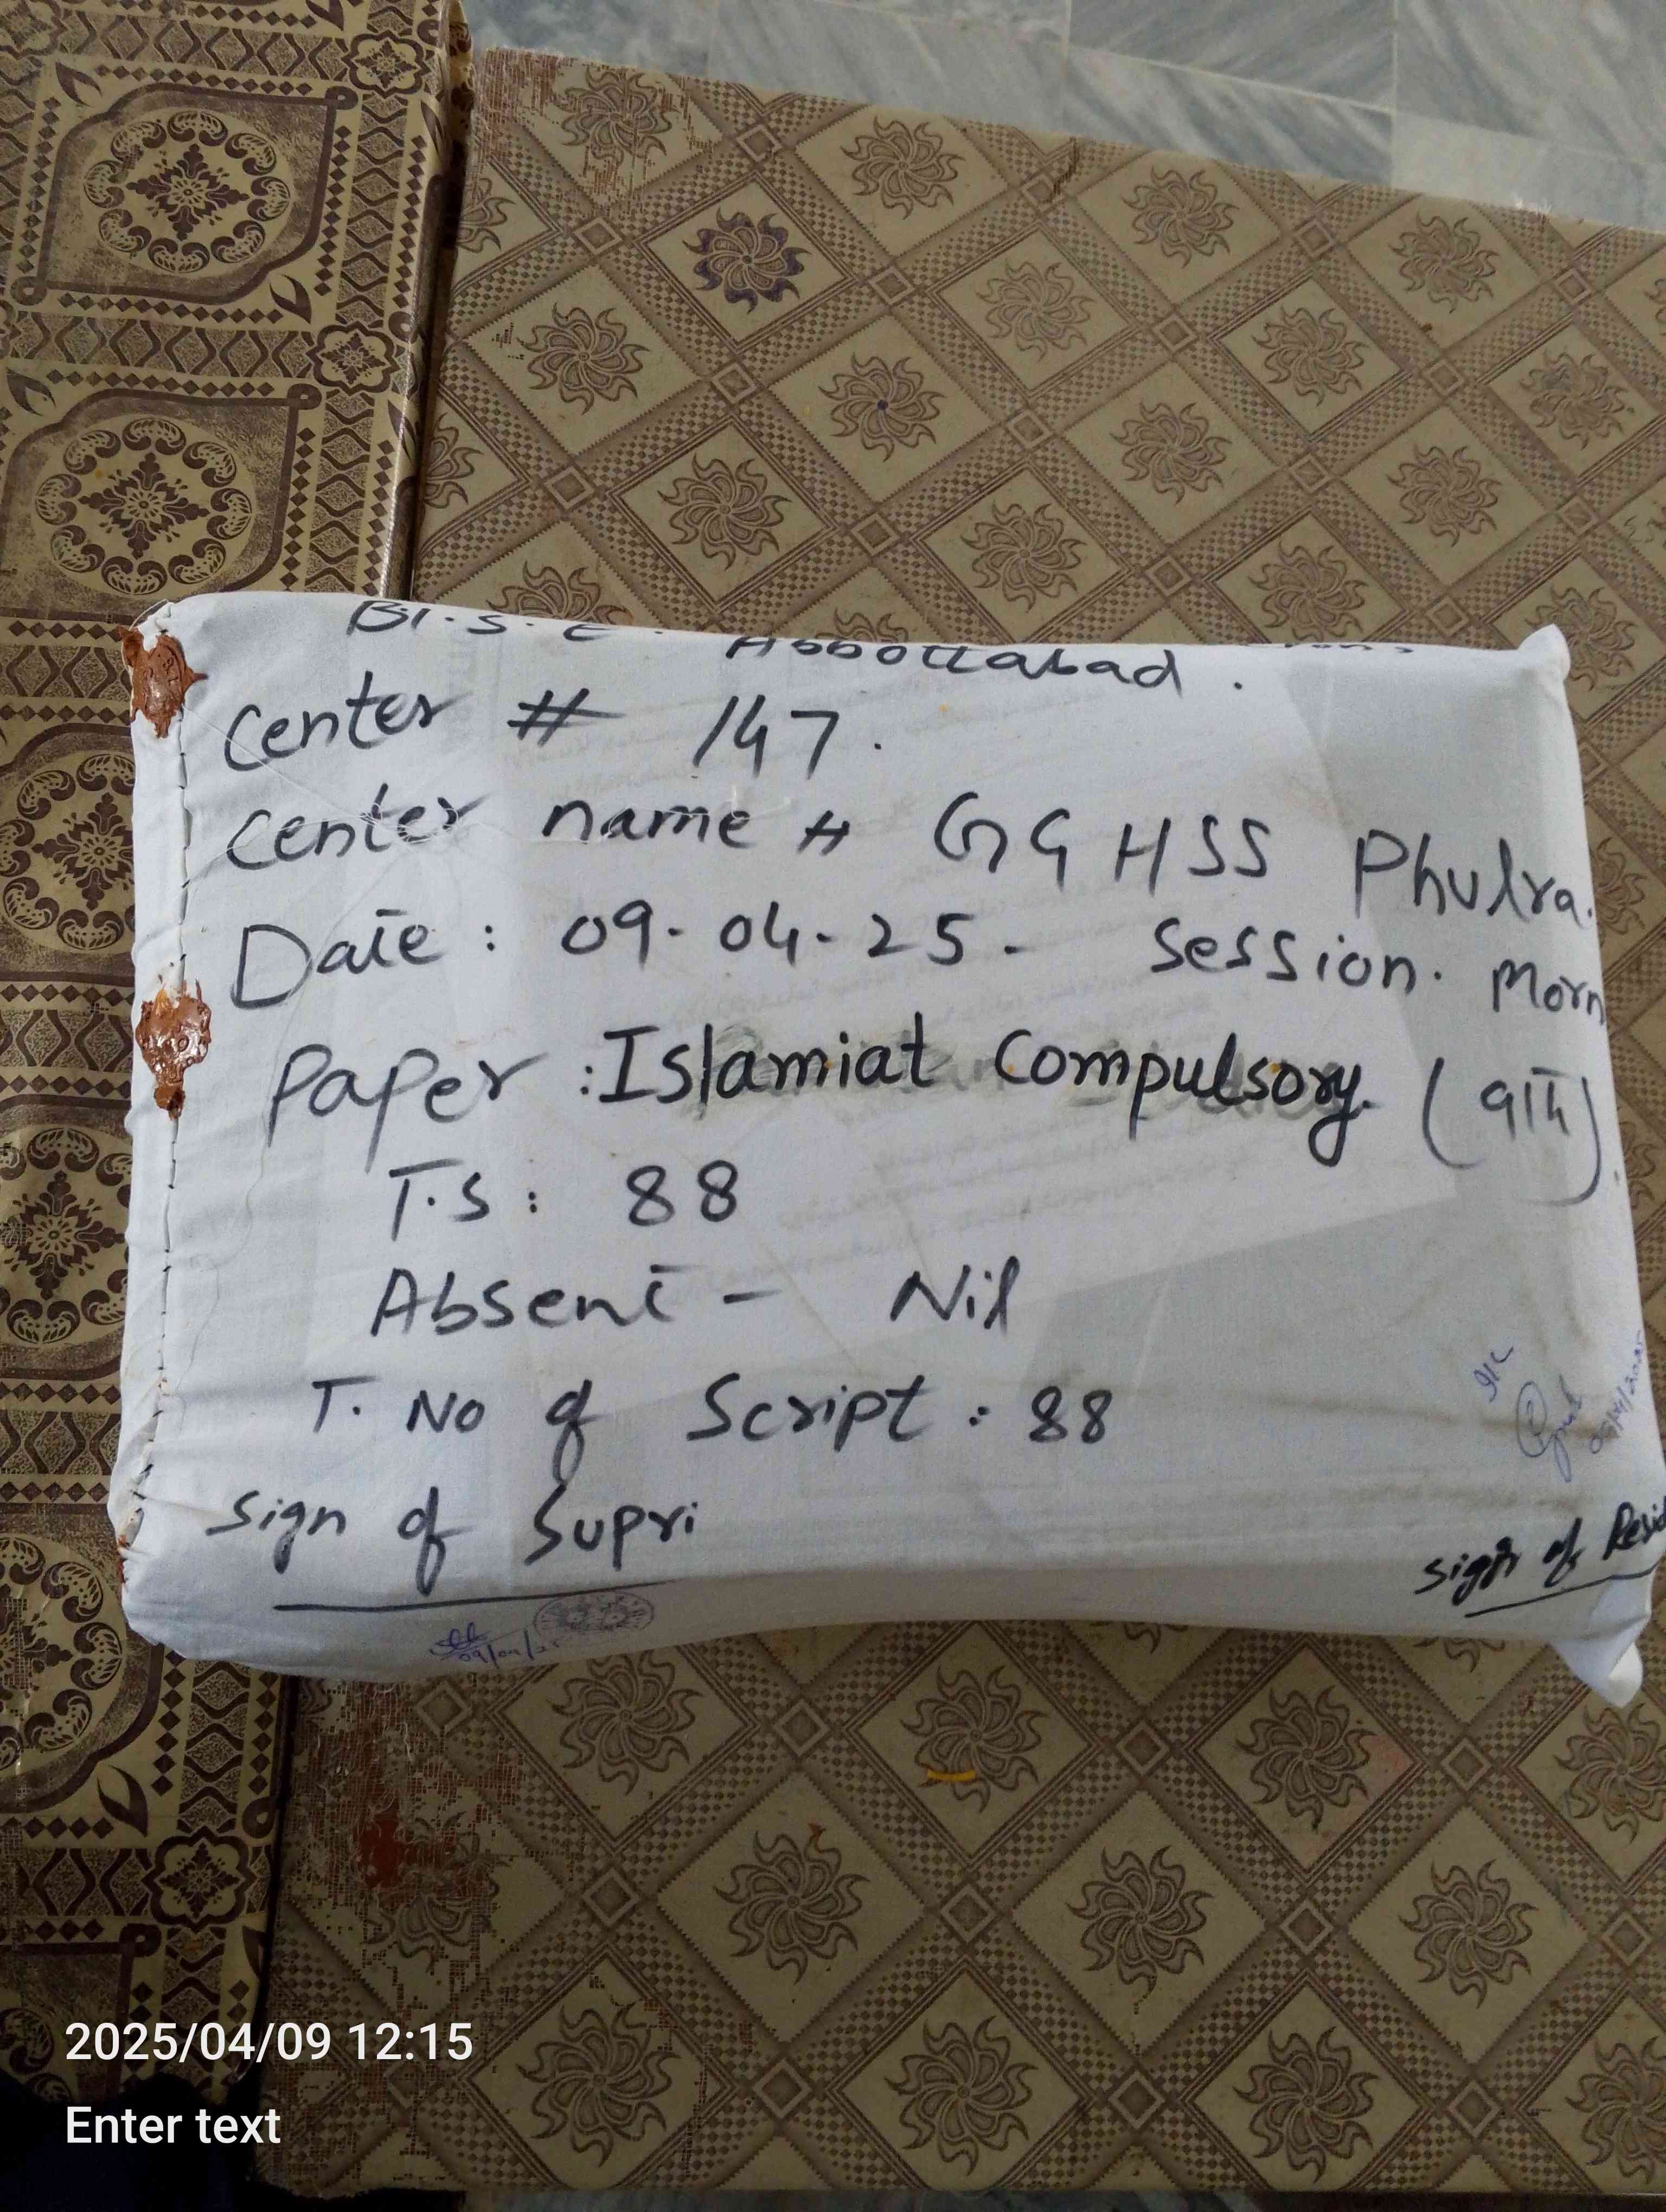 B.I.S.E. Abbottabad.
Center # 147.
Center name # GGHSS Phulra.
Date: 09-04-25- Session. Morn
Paper: Islamiat Compulsory. (9th).
T.S: 88
Absent - Nil
T. No of Script: 88
Sign of Supri
Sign of Resid
09/04/25
2025/04/09 12:15
Enter text